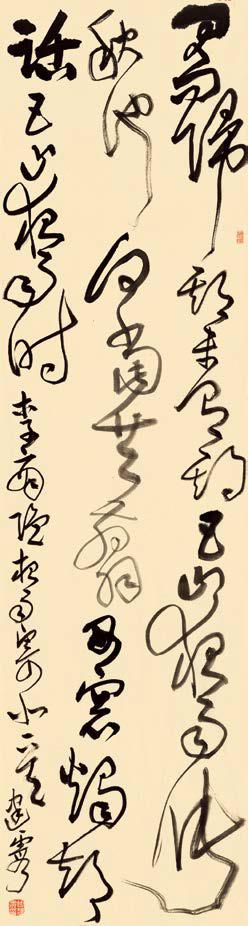 君问歸期未有期巴山夜雨漲
秋池何當共翦西窗燭却
話巴山夜雨时李商隐夜雨寄北